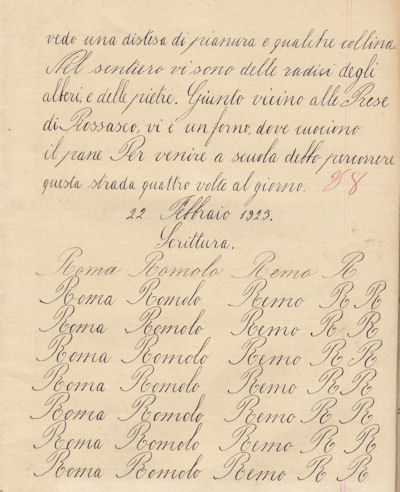 vedo una distesa di pianura e qualche collina.
Nel sentiero vi sono delle radici degli
alberi, e delle pietre. Giunto vicino alle Prese
di Rossasco, vi è un forno, dove cuociono
il pane Per venire a scuola debbo percorrere
questa strada quattro volte al giorno. 8
22 Febbraio 1923.
Scrittura.
Roma Romolo Remo R
Roma Romolo Remo R R
Roma Romolo Remo R R
Roma Romolo Remo R R
Roma Romolo Remo R R
Roma Romolo Remo R R
Roma Romolo Remo R R
Roma Romolo Remo R R